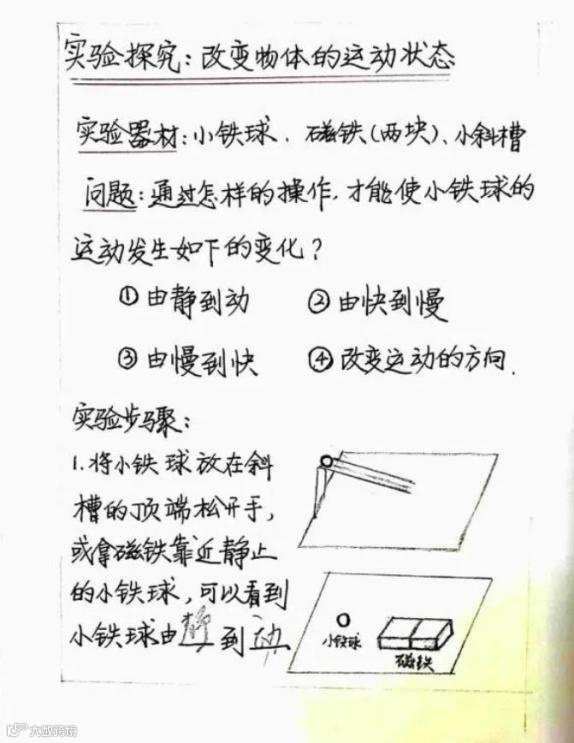 实验探究：改变物体的运动状态
实验器材：小铁球．磁铁(两块)、小斜槽
问题：通过怎样的操作，才能使小铁球的
运动发生如下的变化？
①由静到动 ②由快到慢
③由慢到快 ④改变运动的方向．
实验步骤：
1.将小铁球放在斜
槽的顶端松开手，
或拿磁铁靠近静止
的小铁球，可以看到
小铁球由静到动
小铁球
磁铁
大数跨境